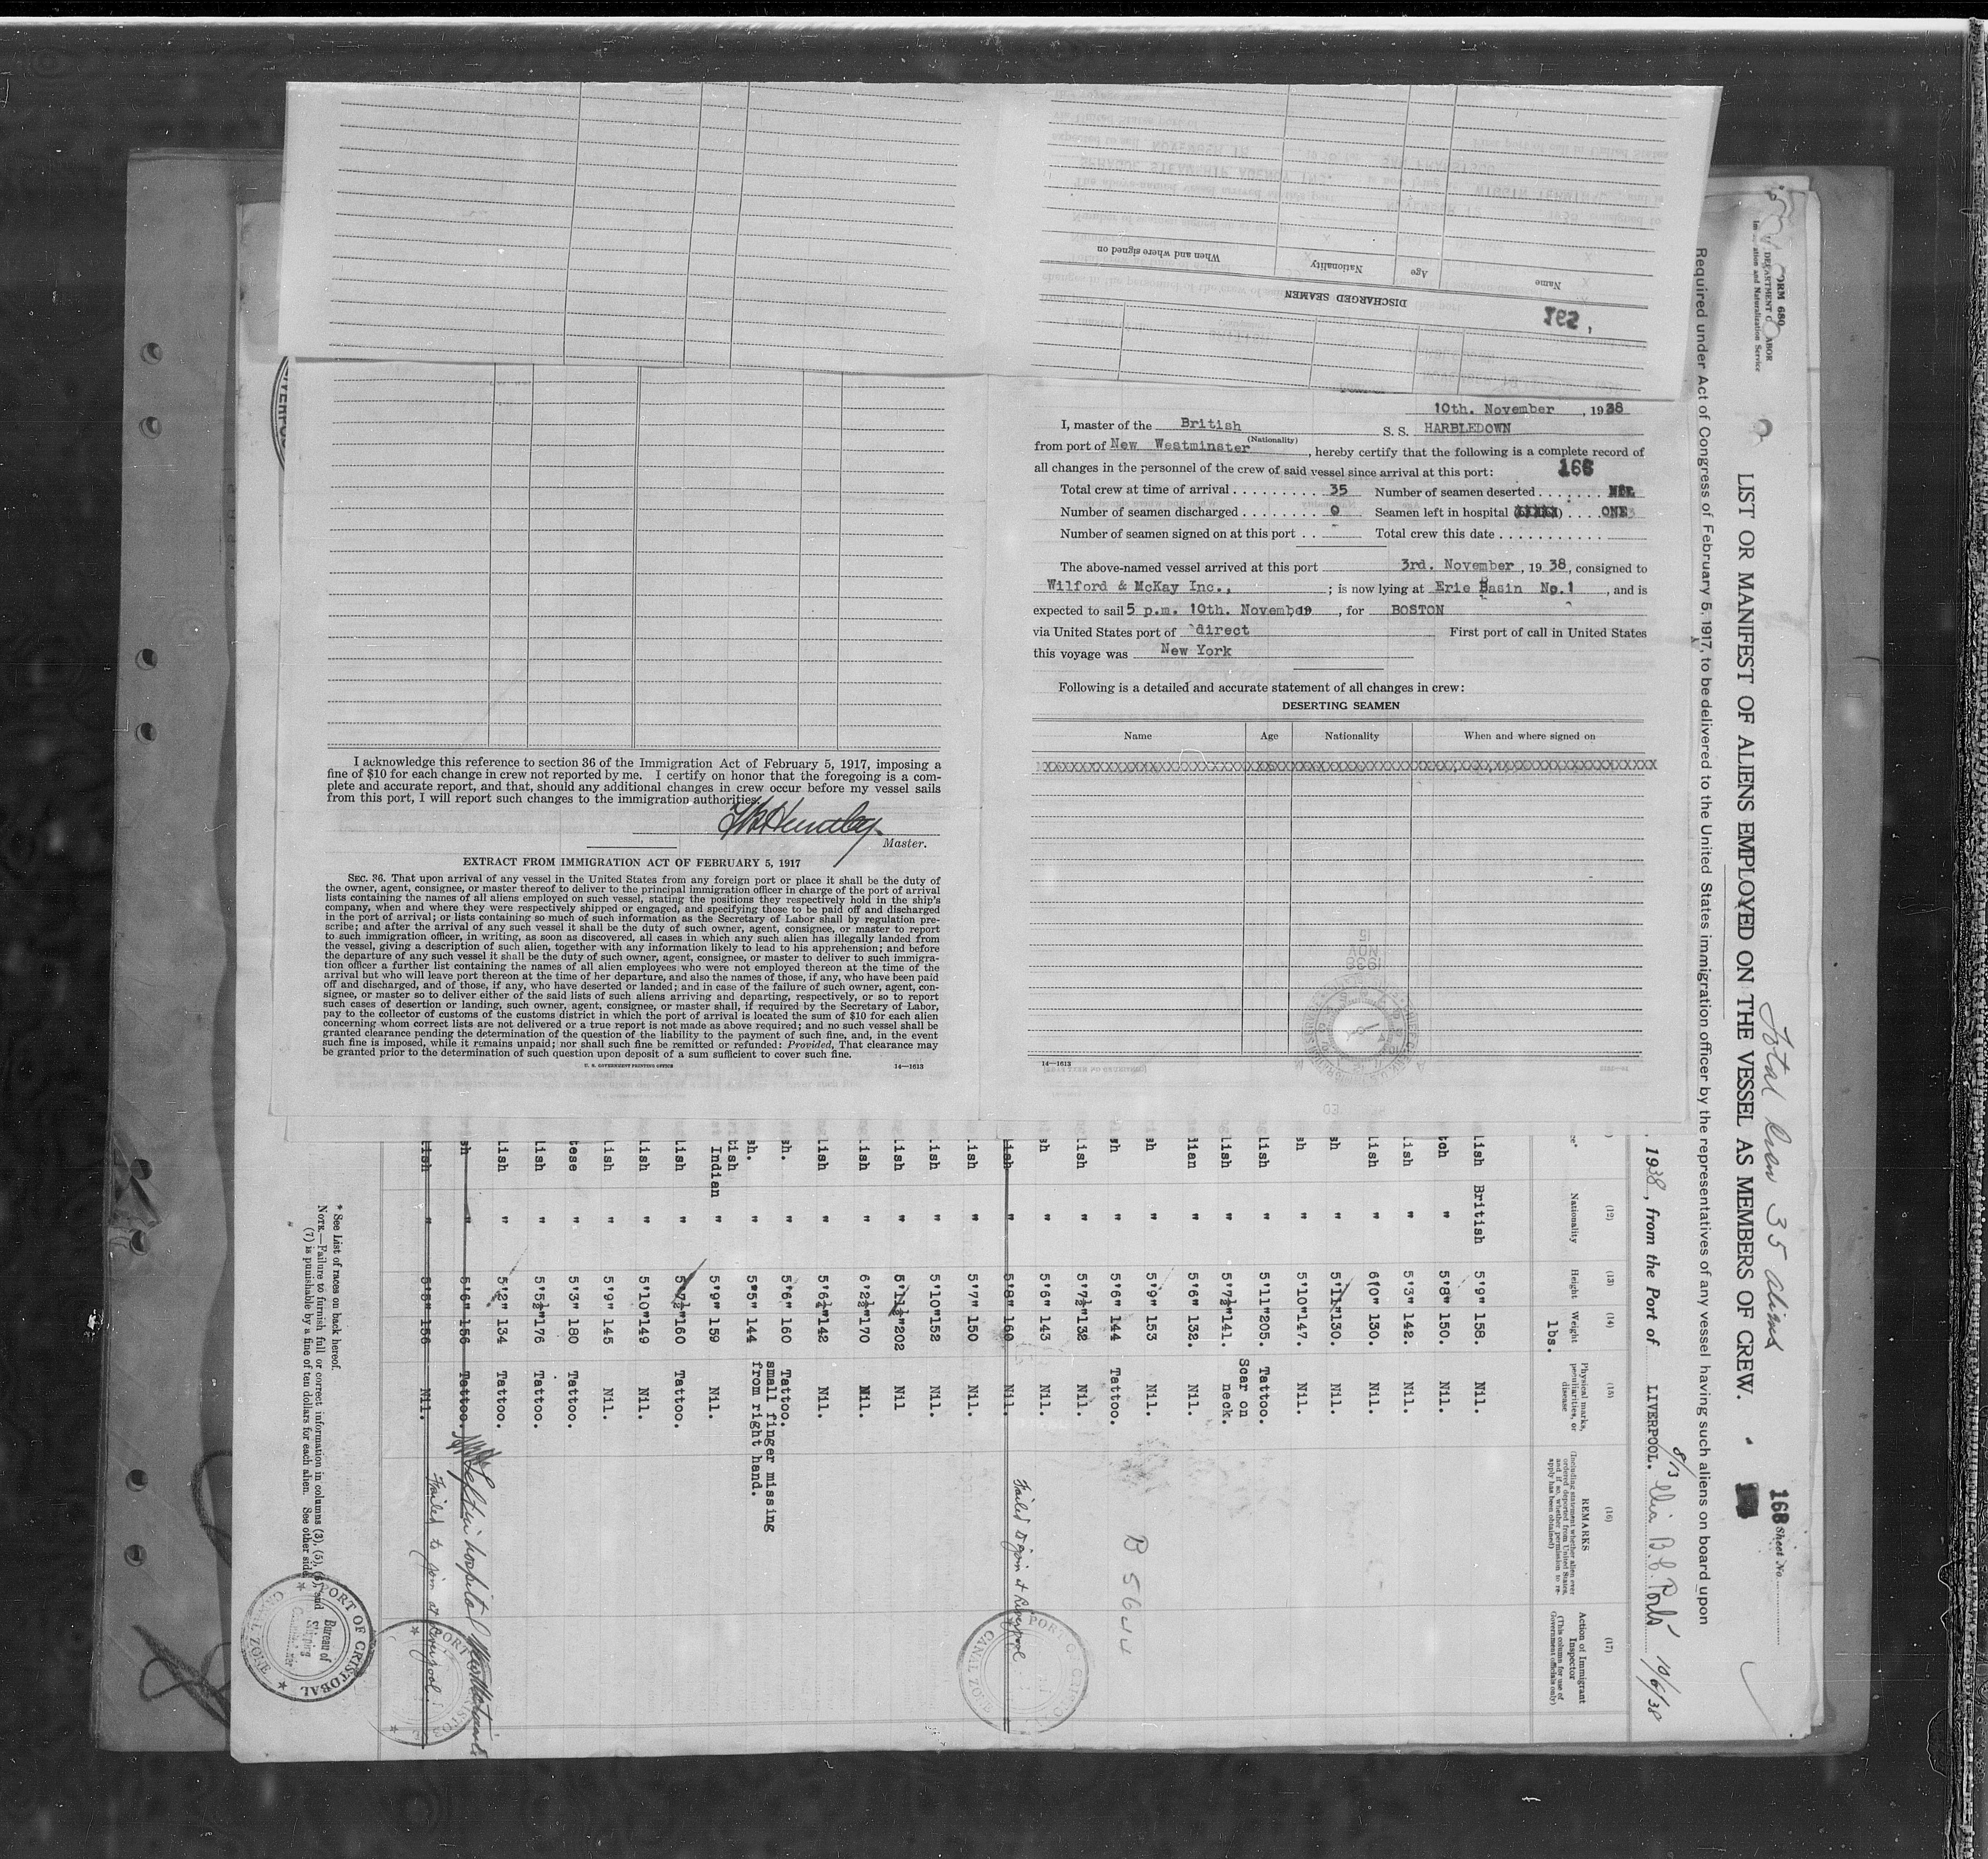 DISCHARGED SEAMEN
Name Age Nationality When and where signed on
10th. November, 1938
I, master of the British S. S. HARBLEDOWN
(Nationality)
from port of New Westminster, hereby certify that the following is a complete record of
all changes in the personnel of the crew of said vessel since arrival at this port:
166
Total crew at time of arrival . . . . . . . . . . 35 Number of seamen deserted . . . . . . . NIL
Number of seamen discharged . . . . . . . . . 0 Seamen left in hospital . . . . ONE
Number of seamen signed on at this port . . - Total crew this date . . . . . . . . . . . .
The above-named vessel arrived at this port 3rd. November, 1938, consigned to
Wilford & McKay Inc., ; is now lying at Erie Basin No.1, and is
expected to sail 5 p.m. 10th. November, 19 , for BOSTON
via United States port of direct First port of call in United States
this voyage was New York
Following is a detailed and accurate statement of all changes in crew:
DESERTING SEAMEN
Name Age Nationality When and where signed on
14—1613
I acknowledge this reference to section 36 of the Immigration Act of February 5, 1917, imposing a
fine of $10 for each change in crew not reported by me. I certify on honor that the foregoing is a com-
plete and accurate report, and that, should any additional changes in crew occur before my vessel sails
from this port, I will report such changes to the immigration authorities.
Master.
EXTRACT FROM IMMIGRATION ACT OF FEBRUARY 5, 1917
SEC. 36. That upon arrival of any vessel in the United States from any foreign port or place it shall be the duty of
the owner, agent, consignee, or master thereof to deliver to the principal immigration officer in charge of the port of arrival
lists containing the names of all aliens employed on such vessel, stating the positions they respectively hold in the ship's
company, when and where they were respectively shipped or engaged, and specifying those to be paid off and discharged
in the port of arrival; or lists containing so much of such information as the Secretary of Labor shall by regulation pre-
scribe; and after the arrival of any such vessel it shall be the duty of such owner, agent, consignee, or master to report
to such immigration officer, in writing, as soon as discovered, all cases in which any such alien has illegally landed from
the vessel, giving a description of such alien, together with any information likely to lead to his apprehension; and before
the departure of any such vessel it shall be the duty of such owner, agent, consignee, or master to deliver to such immigra-
tion officer a further list containing the names of all alien employees who were not employed thereon at the time of the
arrival but who will leave port thereon at the time of her departure, and also the names of those, if any, who have been paid
off and discharged, and of those, if any, who have deserted or landed; and in case of the failure of such owner, agent, con-
signee, or master so to deliver either of the said lists of such aliens arriving and departing, respectively, or so to report
such cases of desertion or landing, such owner, agent, consignee, or master shall, if required by the Secretary of Labor,
pay to the collector of customs of the customs district in which the port of arrival is located the sum of $10 for each alien
concerning whom correct lists are not delivered or a true report is not made as above required; and no such vessel shall be
granted clearance pending the determination of the question of the liability to the payment of such fine, and, in the event
such fine is imposed, while it remains unpaid; nor shall such fine be remitted or refunded: Provided, That clearance may
be granted prior to the determination of such question upon deposit of a sum sufficient to cover such fine.
U. S. GOVERNMENT PRINTING OFFICE 14—1613
168 Sheet No.
Total Crew 35 aliens
LIST OR MANIFEST OF ALIENS EMPLOYED ON THE VESSEL AS MEMBERS OF CREW.
Required under Act of Congress of February 5, 1917, to be delivered to the United States immigration officer by the representatives of any vessel having such aliens on board upon
, 1938, from the Port of LIVERPOOL. 8/13 Via B.C. Ports 10/6/38
(12) (13) (14) (15) (16) (17)
Nationality Height Weight Physical marks, peculiarities, or disease REMARKS Action of Immigrant Inspector
lbs.
(Including statement whether alien ever ordered deported from United States, and if so, whether permission to reapply has been obtained)
(This column for use of Government officials only)
lish British 5'9" 158. Nil.
tch " 5'8" 150. Nil.
lish " 5'3" 142. Nil.
lish " 6'0" 130. Nil.
sh " 5'11" 130. Nil.
sh " 5'10" 147. Nil.
lish " 5'11" 205. Tattoo.
lish " 5'7½" 141. Scar on neck.
lian " 5'6" 132. Nil.
sh " 5'9" 153 Nil.
sh " 5'6" 144 Tattoo. B 5644
lish " 5'7½" 132. Nil.
sh " 5'6" 143 Nil.
lish " 5'8" 160 Nil. Failed to join at Liverpool
lish " 5'7" 150 Nil.
lish " 5'10" 152 Nil.
lish " 5'11½" 202 Nil
lish " 6'2½" 170 Nil.
lish " 5'6½" 142 Nil.
sh. " 5'6" 160 Tattoo.
small finger missing
sh. " 5'5" 144 from right hand.
tish
Indian " 5'9" 159 Nil.
lish " 5'7½" 160 Tattoo.
lish " 5'10" 149 Nil.
lish " 5'9" 145 Nil.
tese " 5'3" 180 Tattoo.
lish " 5'5½" 176 Tattoo.
lish " 5'2" 134 Tattoo.
sh " 5'6" 156 Tattoo. Left in hospital
lish " 5'8" 156 Nil. Failed to join at Liverpool.
* See List of races on back hereof.
NOTE.—Failure to furnish full or correct information in columns (3), (5), (6), and
(7) is punishable by a fine of ten dollars for each alien. See other side.
PORT OF CRISTOBAL
Bureau of
Shipping
CANAL ZONE